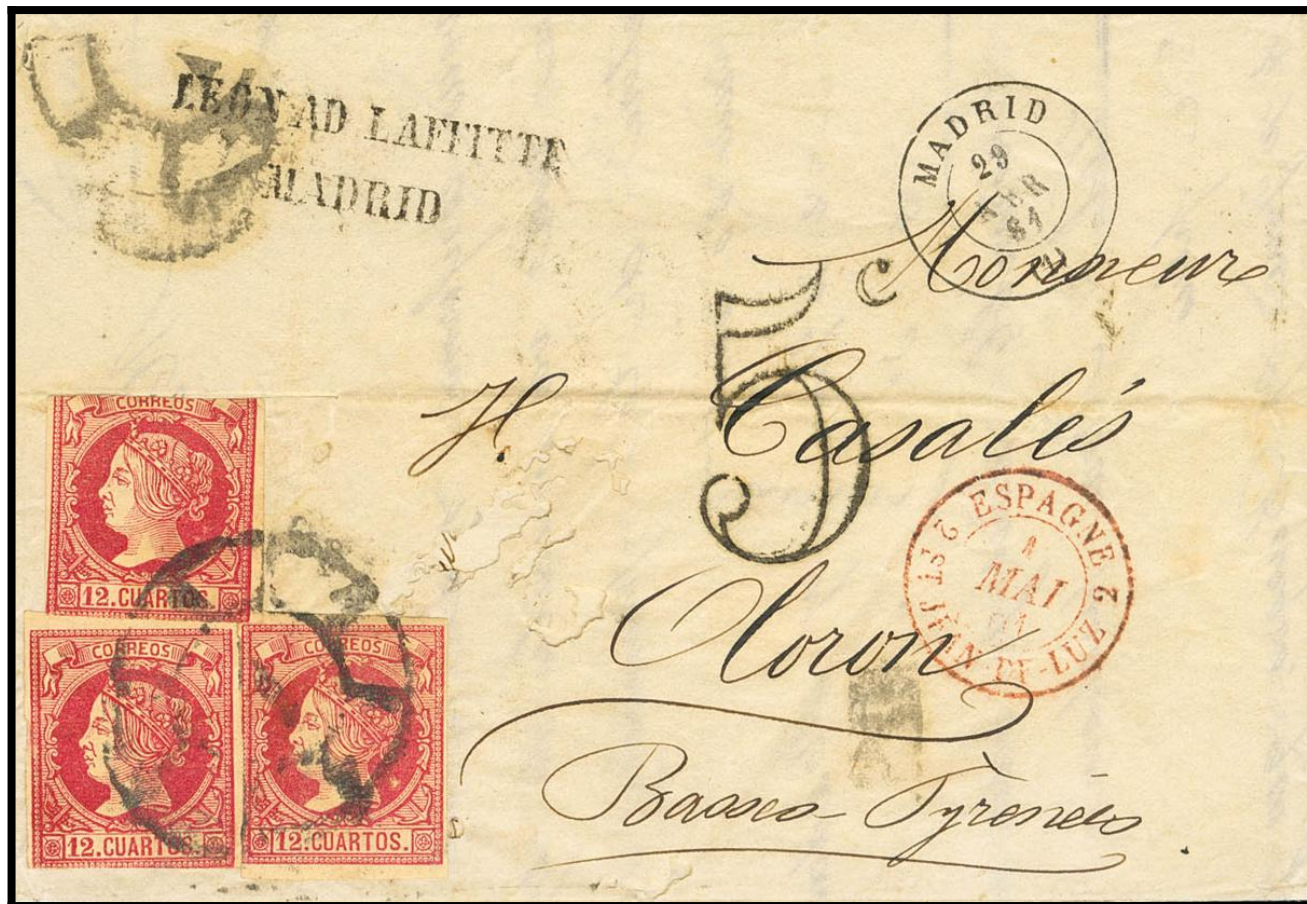 LEON AD LAFFITTE
MADRID
MADRID
29
ABR
61
(1)
Monsieur
5 c
H. Casalés
ESPAGNE
2 ST JEAN-DE-LUZ 2
1
MAI
61
Oloron
Basses-Pyrenées
CORREOS
12.CUARTOS.
CORREOS
12.CUARTOS.
CORREOS
12.CUARTOS.